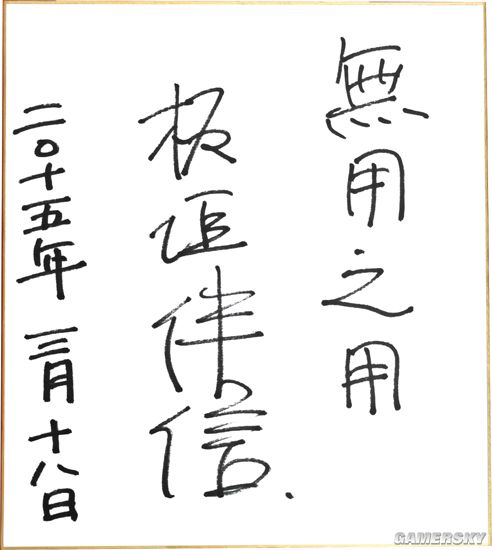 無用之用
板垣伴信.
二〇十五年 三月十八日
GAMERSKY